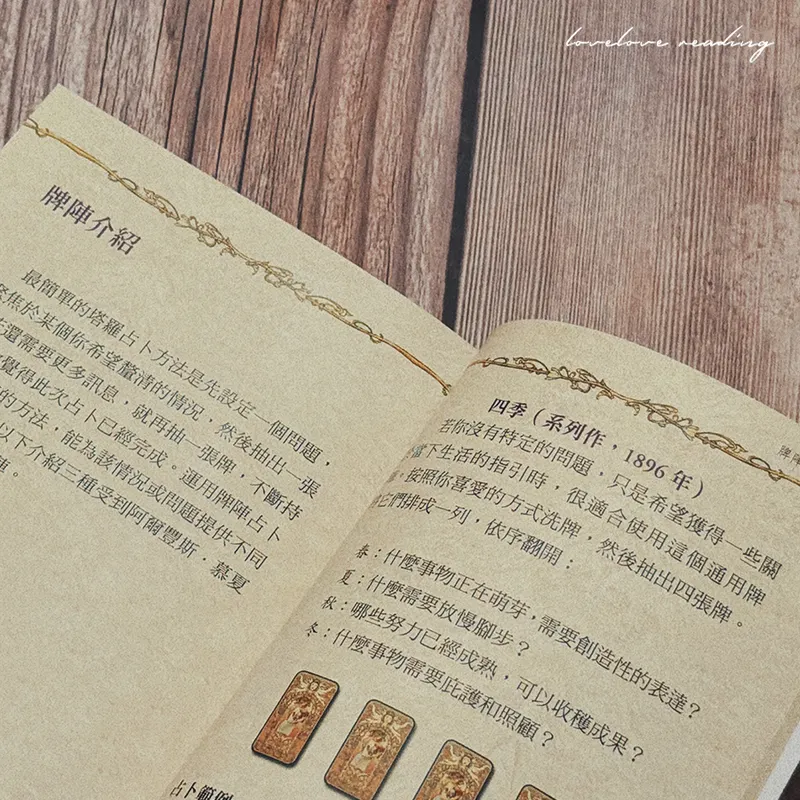 lovelove reading
牌陣介紹
最簡單的塔羅占卜方法是先設定一個問題，
聚焦於某個你希望釐清的情況，然後抽出一張
還需要更多訊息，就再抽一張牌，不斷持
覺得此次占卜已經完成。運用牌陣占卜
的方法，能為該情況或問題提供不同
以下介紹三種受到阿爾豐斯．慕夏
陣。
四季（系列作，1896 年）
若你沒有特定的問題，只是希望獲得一些關
當下生活的指引時，很適合使用這個通用牌
，按照你喜愛的方式洗牌，然後抽出四張牌。
它們排成一列，依序翻開：
春：什麼事物正在萌芽，需要創造性的表達？
夏：什麼需要放慢腳步？
秋：哪些努力已經成熟，可以收穫成果？
冬：什麼事物需要庇護和照顧？
占卜範例